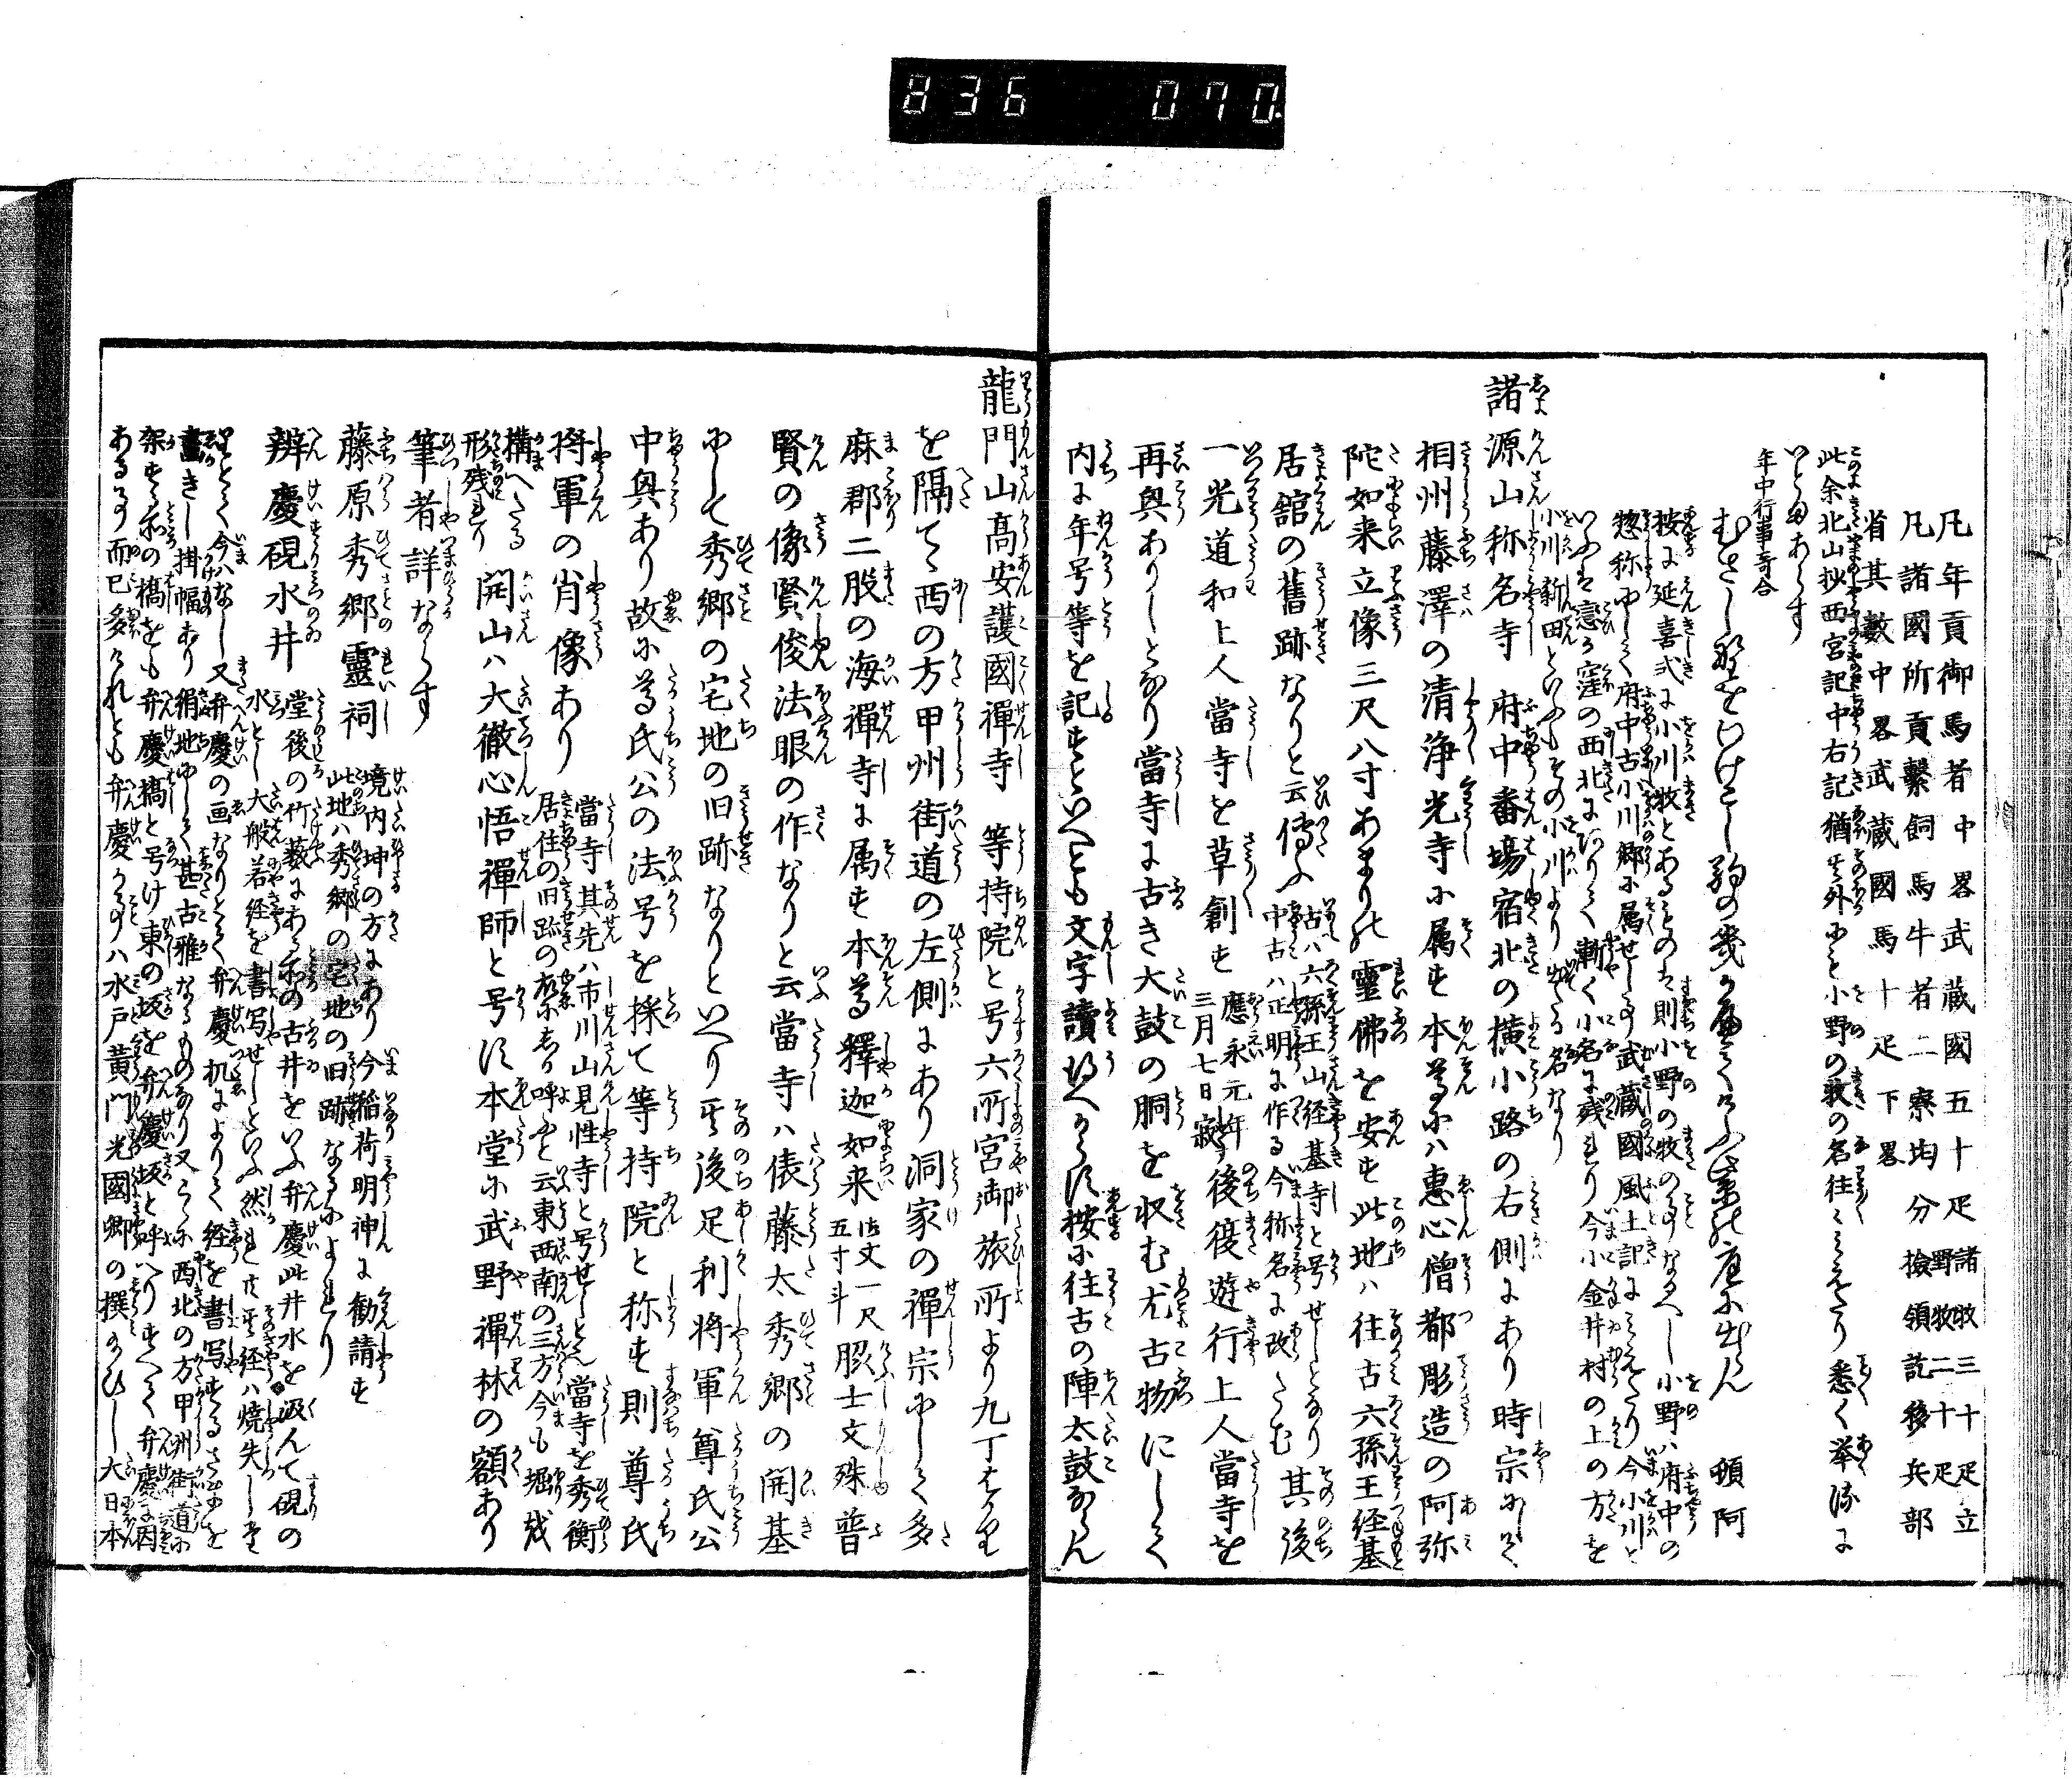 836 070.
凡年貢御馬者中畧武蔵國五十疋諸牧三十疋立野牧二十疋
凡諸國所貢繫飼馬牛者二寮均分撿領訖移兵部
省其數中畧武蔵國馬十疋下畧
此余北山抄西宮記中右記猶其外にも小野の牧の名往々みえたり悉く挙るに
いとまあらす
年中行事哥合
頓阿
按に延喜式に小川牧とあるものは則小野の牧の事なるへし小野ハ府中の
惣称にして府中古小川郷に属せし事武蔵國風土記にみえたり今小川と
いふは恋か窪の西北にありて漸く小名に残れり今小金井村の上の方を
小川新田といふもその小川より出たる名なり
諸源山称名寺 府中番場宿北の横小路の右側にあり時宗にして
相州藤澤の清浄光寺に属す本尊には恵心僧都彫造の阿弥
陀如来立像三尺八寸あまりの靈佛を安す此地ハ往古六孫王経基
居舘の舊跡なりと云傳ふ 古ハ六孫王山経基寺と号せしとなり其後中古ハ正明に作る今称名に改たむ
一光道和上人當寺を草創す 應永元年三月七日寂す 後復遊行上人當寺を
再興ありしとなり當寺に古き大鼓の胴を収む尤古物にして
内に年号等を記すといへとも文字讀得へからす按に往古の陣太鼓ならん
龍門山高安護國禅寺 等持院と号六所宮御旅所より九丁はかり
を隔て西の方甲州街道の左側にあり洞家の禅宗にして多
麻郡二股の海禅寺に属す本尊釋迦如来 五寸斗 脇士文殊普
賢の像賢俊法眼の作なりと云當寺ハ俵藤太秀郷の開基
にして秀郷の宅地の旧跡なりといへり其後足利将軍尊氏公
中興あり故に尊氏公の法号を採て等持院と称す則尊氏
将軍の肖像あり 當寺其先ハ市川山見性寺と号せしとそ當寺を秀衡
居住の旧跡の故にしか呼ふと云東西南の三方今も堀或
構へたる形残れり 開山ハ大徹心悟禅師と号す本堂に武野禅林の額あり
筆者詳ならす
藤原秀郷靈祠 境内坤の方にあり今稲荷明神に勧請す
此地ハ秀郷の宅地の旧跡なるによれり
辨慶硯水井 堂後の竹薮にある所の古井をいふ弁慶此井水を汲んて硯の
水とし大般若経を書写せしといふ然れとも其経ハ焼失しそ
とて今ハなし又弁慶の画なりとて弁慶机によりて経を書写するさまを
畫きし掛幅あり絹地にして甚古雅なるものなり又こゝに西北の方甲州街道に
架する所の橋をも弁慶橋と号け東の坂を弁慶坂と呼へりすへて弁慶に因
ある事而已多けれとも弁慶か事ハ水戸黄門光國卿の撰給ひし大日本